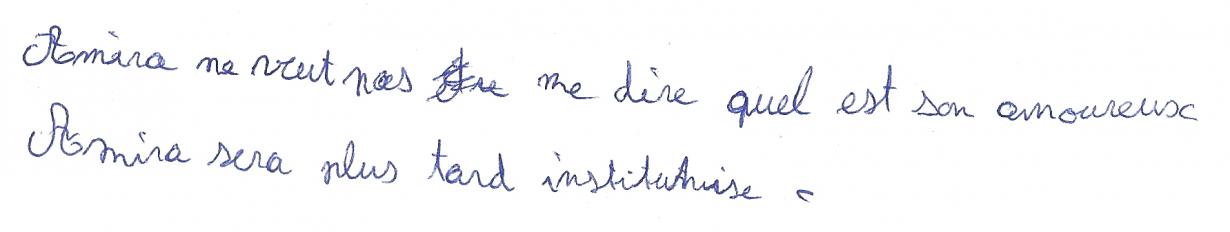 Amira ne veut pas me dire quel est son amoureux
Amira sera plus tard institutruise.